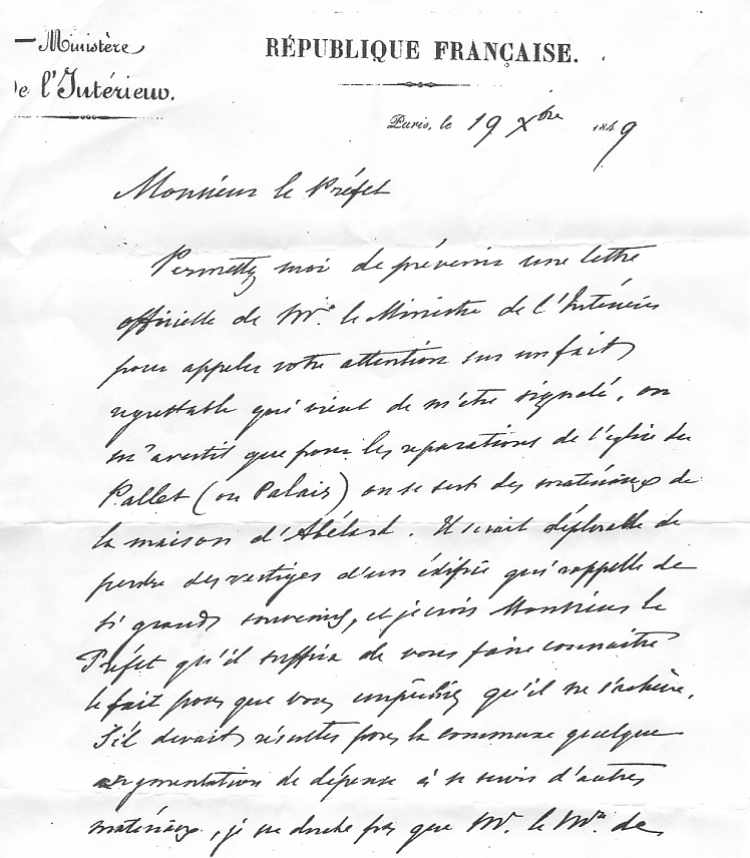 Ministère
de l'Intérieur.
RÉPUBLIQUE FRANÇAISE.
Paris, le 19 Xbre 1849
Monsieur le Préfet
Permettez moi de prévenir une lettre
officielle de Mr. le Ministre de l'Intérieur
pour appeler votre attention sur un fait
regrettable qui vient de m'être signalé, on
m'avertit que pour les réparations de l'église du
Pallet (ou Palais) on se sert des matériaux de
la maison d'Abélard. Il serait déplorable de
perdre des vestiges d'un édifice qui rappelle de
si grands souvenirs, et je crois Monsieur le
Préfet qu'il suffira de vous faire connaitre
le fait pour que vous empêchiez qu'il ne s'achève.
S'il devait résulter pour la commune quelque
augmentation de dépense à se servir d'autres
matériaux, je ne doute pas que Mr. le Mre de